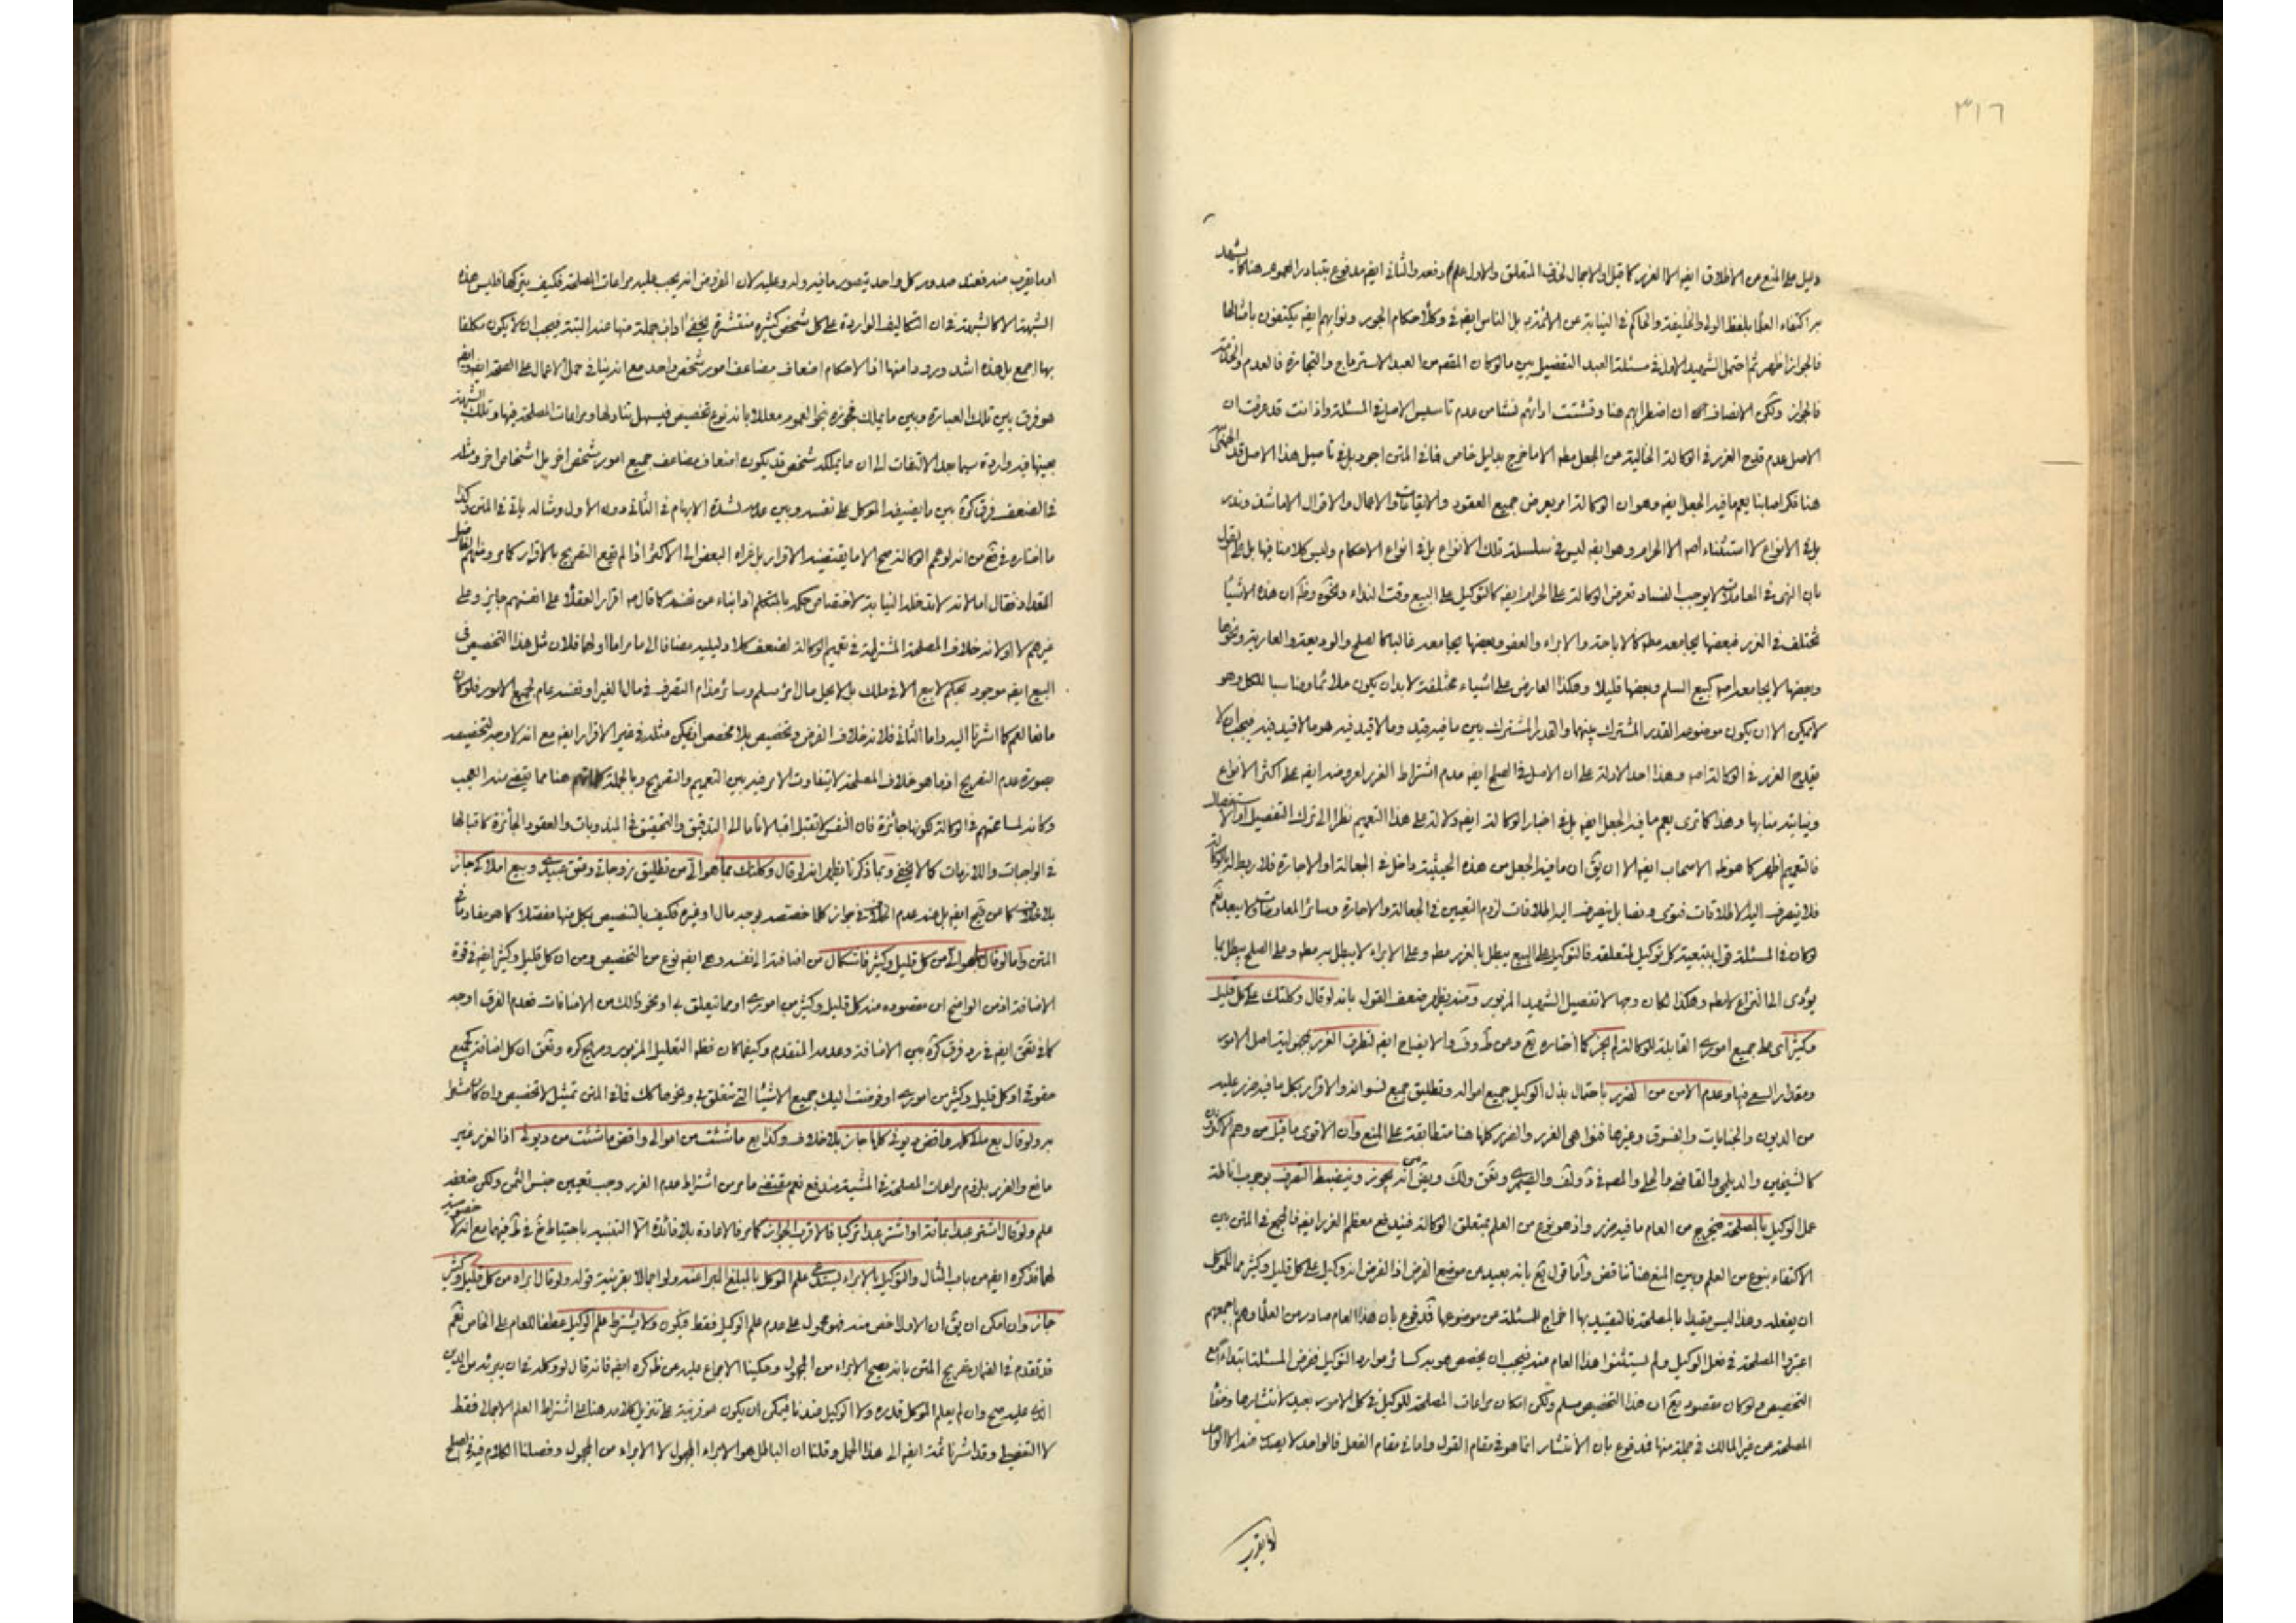 ٣١٦
دليل على المنع من الاطلاق ايضا الا الغرر كما قيل والاجمال لحذف المتعلق والاول علم دفعه والثاني ايضا مدفوع بتبادر العموم هنا كما يشهد
به اكتفاء العلماء بلفظ الولي والخليفة والحاكم في النيابة عن الائمة بل الناس ايضا في وكلاء حكام الجور ونوابهم ايضا يكتفون بامثالها
فالجواز اظهر ثم احتمل الشهيد الاول في مسئلة العبد التفضيل بين ما لو كان المقصود من العبد الاسترباح والتجارة فالعدم والخدمة
فالجواز ولكن الانصاف ان اضطرابهم هنا وتشتت ارائهم نشا من عدم تاسيس الاصل في المسئلة واذ انت قد عرفت ان
الاصل عدم قدح الغرر في الوكالة الخالية من الجعل مط الا ما خرج بدليل خاص فاني المتن اجود بل في تاصيل هذا الاصل
هنا فكر اصابنا يعم ما فيه الجعل ايضا وهو ان الوكالة امر يعرض جميع العقود والايقاعات والاعمال والاقوال الا ما شذ وندر
بل في الانواع لا استثناء اصلا الا الحرام وهو ايضا ليس في سلسلة تلك الانواع بل في انواع الاحكام وليس كلامنا فيها بل على القول
بان النهي في المعاملات لا يوجب الفساد تعرض الوكالة على الحرام ايضا كالتوكيل على البيع وقت النداء ونحوه وظ ان هذه الاشياء
تختلف في الغرر فبعضها يجامعه مط كالاباحة والابراء والعفو وبعضها يجامعه غالبا كالصلح والوديعة والعارية ونحوها
وبعضها لا يجامعه اصلا كبيع السلم وبعضها قليلا وهكذا العارض على اشياء مختلفة لا بد ان يكون ملائما ومناسبا للكل وهو
لا يمكن الا ان يكون موضوعه القدر المشترك بينهما والقدر المشترك بين ما فيه قيد وما لا قيد فيه هو ما لا قيد فيه فيجب ان لا
يقدح الغرر في الوكالة اصلا وهذا احد الادلة على ان الاصل في الصلح ايضا عدم اشتراط الغرر لعروضه ايضا على اكثر الانواع
ونيابته منابها وهذا كما ترى يعم ما فيه الجعل ايضا بل في اخبار الوكالة ايضا دلالة على هذا التعميم نظرا الى ترك التفصيل او الاستفصال
فالتعميم اظهر كما هو ظ الاصحاب ايضا الا ان يق ان ما فيه الجعل من هذه الحيثية داخل في الجعالة او الاجارة فلا ربط له بالوكالة
فلا ينصرف اليه الاطلاقات فتوى ونصا بل ينصرف اليه اطلاقات لزوم التعيين في الجعالة والاجارة وسائر المعاوضات ولا يبعد نعم
لو كان في المسئلة قول بتبعية كل توكيل لمتعلقه فالتوكيل على البيع يبطل بالغرر مط وعلى الابراء لا يبطل به مط وعلى الصلح يبطل بما
يؤدي الى النزاع لا مط وهكذا لكان وجها لا تفصيل الشهيد المزبور ومنه يظهر ضعف القول بانه لو قال وكلتك على كل قليل
وكثير اي على جميع اموري القابلة للوكالة لم يجز كما اختاره يع وعن ط وف والايضاح ايضا لتطرق الغرر بمجهولية اصل الامور
ومقدار السعي فيها وعدم الامن من الضرر باحتمال بذل الوكيل جميع امواله وتطليق جميع نسوانه والاقرار بكل ما فيه ضرر عليه
من الديون والجنايات والفسوق وغيرها فنواهي الغرر والضرر كلها هنا متطابقة على المنع وان الاقوى ما قيل من وهم الاكثرون
كالشيخين والديلمي والقاضي والحلي والمصنف في كره ولف والصيمري وغيرهم ويق انه يجوز وينضبط التصرف بوجوب اناطة
عمل الوكيل بالمصلحة فيخرج من العام ما فيه ضرر واذ هو نوع من العلم بمتعلق الوكالة فيندفع معظم الغرر ايضا فالجمع في المتن بين
الاكتفاء بنوع من العلم وبين المنع هنا تناقض واما قول يع بانه بعيد من موضع الفرض اذ الفرض انه وكيل على كل قليل وكثير مما للموكل
ان يفعله وهذا ليس مقيدا بالمصلحة فالتقييد بها اخراج للمسئلة عن موضوعها فمدفوع بان هذا العام صادر من العلماء وهم باجمعهم
اعتبروا المصلحة في فعل الوكيل ولم يستثنوا هذا العام منه فيجب ان يخصص هو به كسائر موارد التوكيل ففرض المسئلة ابتداء مع
التخصيص ولو كان مقصود يع ان هذا التخصيص مسلم ولكن امكان مراعات المصلحة للوكيل في كل الامور بعيد لانتشارها وخفاء
المصلحة عن غير المالك في جملة منها فمدفوع بان الانتشار انما هو في مقام القول واما في مقام الفعل فالواحد لا يصدر منه الا الواحد
او ما يقرب منه فعند صدور كل واحد يتصور ما فيه وله وعليه لان المفروض انه يجب عليه مراعات المصلحة فكيف يتركها فليس هذه
الشبهة الا كالشبهة في ان التكاليف الواردة على كل شخص كثيرة منتشرة يخفى اداب جملة منها عنه البتة فيجب ان لا يكون مكلفا
بها اجمع بل هذه اشد ورودا منها اذ الاحكام اضعاف مضاعف امور شخص واحد مع انه ينافي حمل الاعمال على الصحة ايضا
هو فرق بين تلك العبارة وبين ما يملك فجوزه بنحو العموم معللا بانه نوع تخصيص فيسهل تناولها ومراعات المصلحة فيها وتلك الشبهة
بعينها فيه واردة سيما بعد الالتفات الى ان ما يملكه شخص قد يكون اضعاف مضاعف جميع امور شخص اخر بل اشخاص اخر ومثله
في الضعف فرق كره بين ما يضيفه الموكل على نفسه وبين عدمه لشدة الابهام في الثاني دون الاول ومثاله ياتي في المتن وكذا
ما اختاره في يع من انه لو عمم الوكالة صح الا ما يقتضيه الاقرار بل عزاه البعض الى الاكثر اذا لم يقع التصريح بالاقرار كما مر
المقداد فقال اما لانه لا تدخله النيابة لاختصاص حكمه بالمتكلم اذ انباء عن نفسه كما قال ص اقرار العقلاء على انفسهم جايز وعلى
غيرهم لا او لانه خلاف المصلحة المشترطة في تعميم الوكالة لضعف كلا دليليه مضافا الى ما مر اما اولهما فلان مثل هذا التخصيص في
البيع ايضا موجود بحكم لا بيع الا في ملك بل لا يحل مال امرء مسلم وسائر ما ذم التصرف في مال الغير او نفسه عام لجميع الامور فلو كان
مانعا لعم كما اشرنا اليه واما الثاني فلانه خلاف الفرض وتخصيص بلا مخصص اذ يمكن مثله في غير الاقرار ايضا مع انه لا وجه لتخصيصه
بصورة عدم التصريح اذ ما هو خلاف المصلحة لا يتفاوت الامر فيه بين التعميم والتصريح وبالجملة كلماتهم هنا مما يقضى منه العجب
وكانه لمسامحتهم في الوكالة لكونها جائزة فان النفس لا تقبل اقبالا تاما الى التدقيق والتحقيق في المندوبات والعقود الجائزة كاقبالها
في الواجبات واللازمات كما لا يخفى وبما ذكرنا يظهر انه لو قال وكلتك بما هو الي من تطليق زوجاتي وعتق عبيدي وبيع املاكي جاز
بلا خلاف كما عن يع ايضا بل عنه عدم الخلاف في جواز كلما خصصه بوجه مال او غيره فكيف بالتنصيص بكل منها مفصلا كما هو مفاد
المتن واما لو قال بما هو الي من كل قليل وكثير فاشكال من اضافته الى نفسه وهي ايضا نوع من التخصيص ومن ان كل قليل وكثير ايضا في قوة
الاضافة اذ من الواضح ان مقصوده منه كل قليل وكثير من اموري او مما يتعلق بي او نحو ذلك من الاضافات فعدم الفرق اوجه
كما في يق ايضا في رد فرق كره بين الاضافة وعدمه المتقدم وكيفما كان فظ التعليل المزبور وصريح كره ويق ان كل اضافة كجميع
حقوقي او كل قليل وكثير من اموري او فوضت اليك جميع الاشياء التي تتعلق بي ونحوها كك فما في المتن تمثيل لا تخصيص وان كان مشعرا
به ولو قال بع مالي كله واقض ديوني كلها جاز بلا خلاف وكذا بع ما شئت من اموالي واقض ما شئت من ديوني اذ الغرر غير
مانع والغرر بلزوم مراعات المصلحة في المشية مندفع نعم مقتضى ما مر من اشتراط عدم الغرر وجب تعيين جنس الثمن ولكن ضعفه
علم ولو قال اشتر عبدا بمائة او اشتر عبدا تركيا فالاقرب الجواز كما مر فالاعادة بلا فائدة الا التنبيه باحتياط في فيهما مع انه لا خصوصية
لهما فذكره ايضا من باب المثال والتوكيل بالابراء يستدعي علم الموكل بالمبلغ المبرء عنه ولو اجمالا بقرينة قوله ولو قال ابراه من كل قليل وكثير
جاز وان امكن ان يق ان الاولا اخص منه فهو محمول على عدم علم الوكيل فقط فيكون ولا يشترط علم الوكيل عطفا للعام على الخاص نعم
قد تقدم في الضمان تصريح المتن بانه يصح الابراء من المجهول وحكينا الاجماع عليه عن ظ كره ايضا فانه قال لو وكله في ان يبرئه من الدين
الذي عليه صح وان لم يعلم الموكل قدره ولا الوكيل عندنا فيمكن ان يكون هو قرينة على تنزيل كلامه هنا على اشتراط العلم الاجمالي فقط
لا التفصيلي وقد اشرنا ثمة ايضا الى هذا الحمل وقلنا ان الباطل هو الابراء المجهول لا الابراء من المجهول وفصلنا الكلام فيه في الصلح